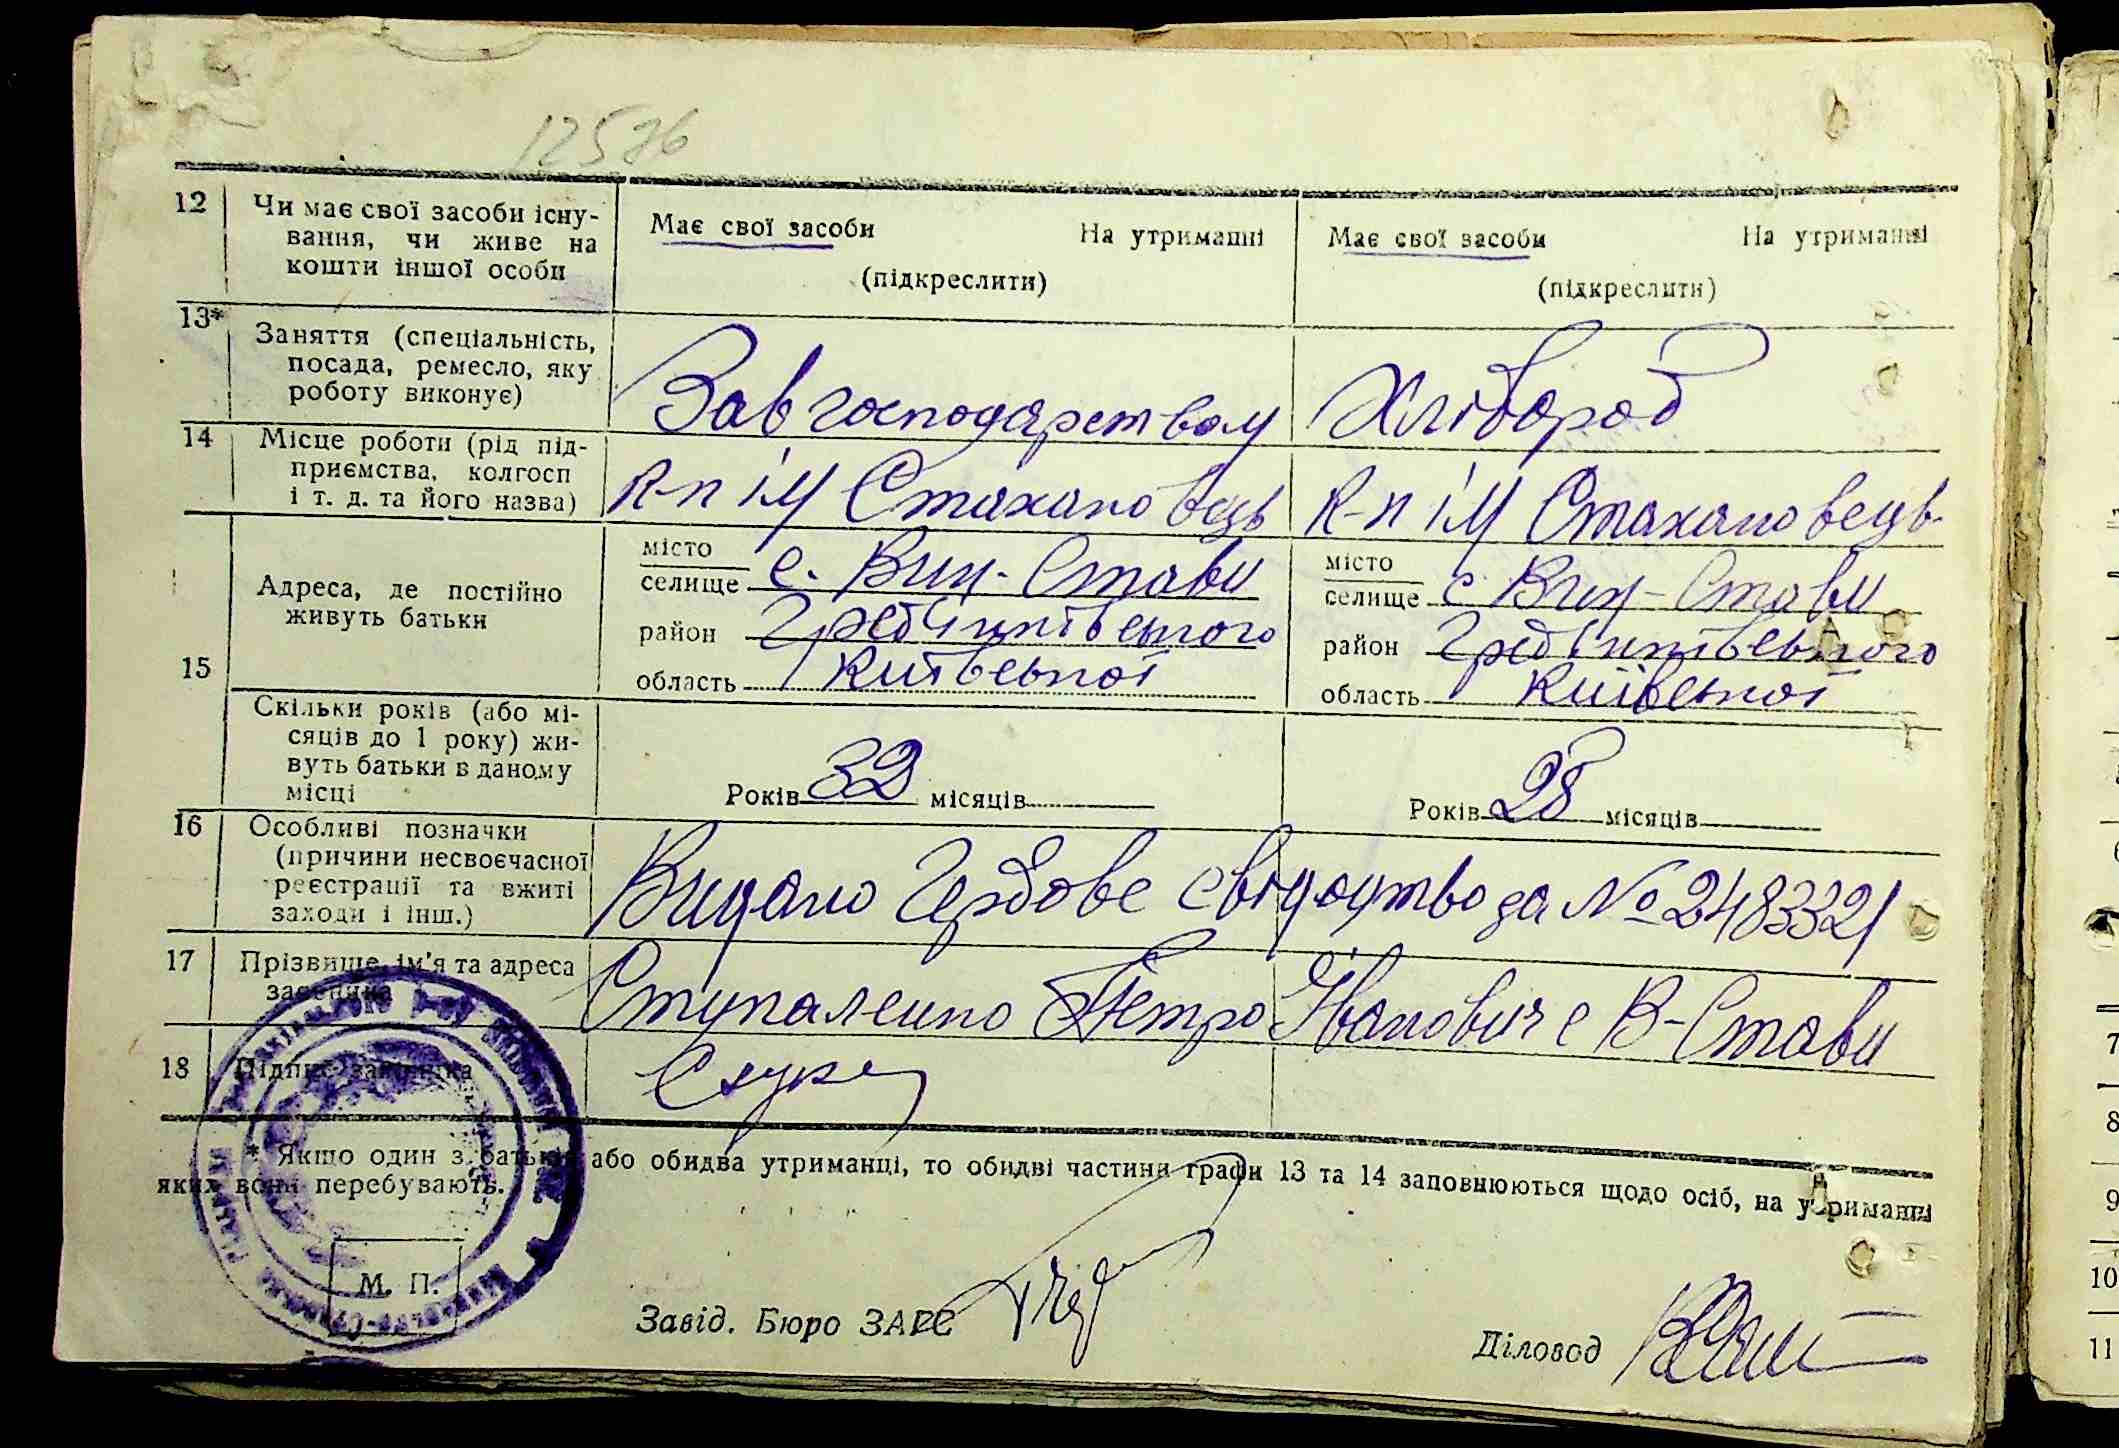 12576
12 Чи має свої засоби існу-
вання, чи живе на
кошти іншої особи
Має свої засоби На утриманні
(підкреслити)
Має свої засоби На утриманні
(підкреслити)
13* Заняття (спеціальність,
посада, ремесло, яку
роботу виконує)
Завгосподарством
Хлібороб
14 Місце роботи (рід під-
приємства, колгосп
і т. д. та його назва)
К-п ім Стахановець
К-п ім Стахановець
15
Адреса, де постійно
живуть батьки
місто
селище с. Вин-Стави
район Гребінківського
область Київської
місто
селище с Вин-Стави
район Гребінківського
область Київської
Скільки років (або мі-
сяців до 1 року) жи-
вуть батьки в даному
місці
Років 32 місяців
Років 28 місяців
16 Особливі позначки
(причини несвоєчасної
реєстрації та вжиті
заходи і інш.)
Видано Гербове свідоцтво за № 2483321
17 Прізвище, ім'я та адреса
заявника
Ступаленко Петро Іванович с В-Стави
18 Підпис заявника
* Якщо один з батьків або обидва утриманці, то обидві частини графи 13 та 14 заповнюються щодо осіб, на утриманні
яких вони перебувають.
М. П.
Завід. Бюро ЗАГС
Діловод
7
8
9
10
11